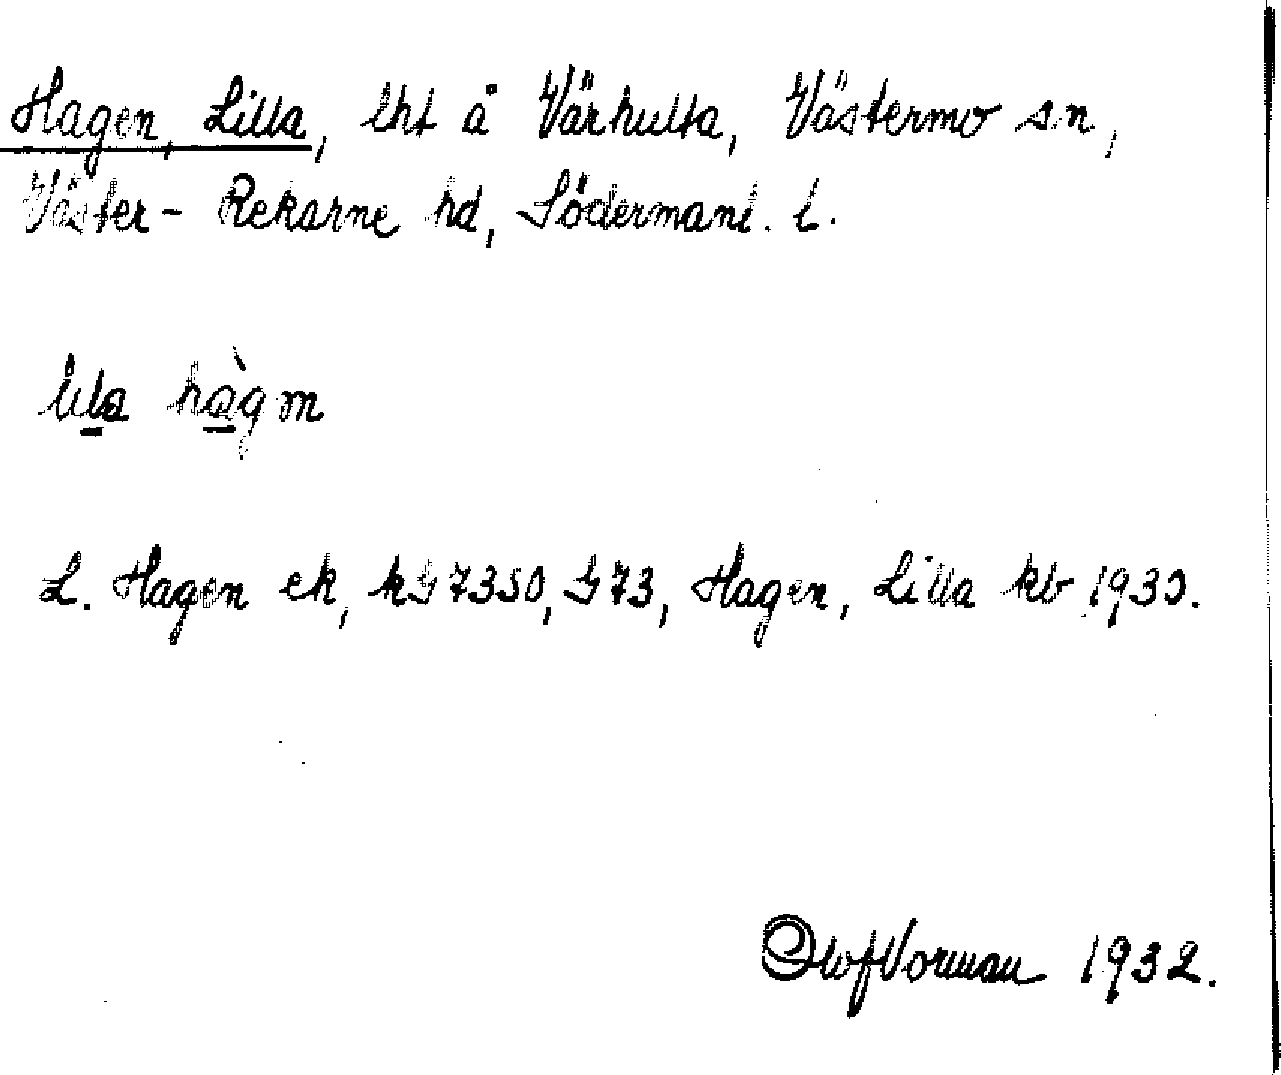 Hagen, Lilla, lht å Värhulta, Västermo sn,
Väster-Rekarne hd, Södermanl. l.
lila hàgm
L. Hagen ek, kG 7350, G 73, Hagen, Lilla kb 1930.
Olof Vorman 1932.